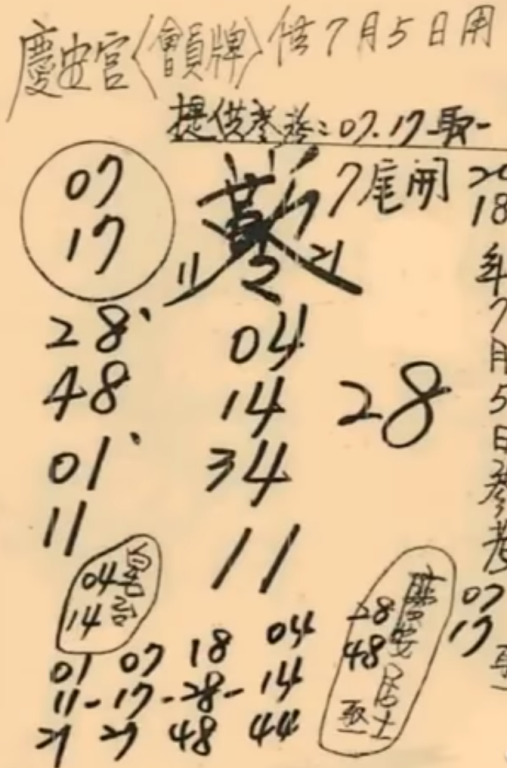 慶安宮〈會員牌〉供7月5日用
提供參考:07.17取一
07
17
7尾開
11 2 21
28、
48
01、
11
04
14
34
11
28
2018年7月5日參考
07
17
取
04
14
慶安居士
28
48
取
01 07 18 04
11-17-28-14
21 27 48 44